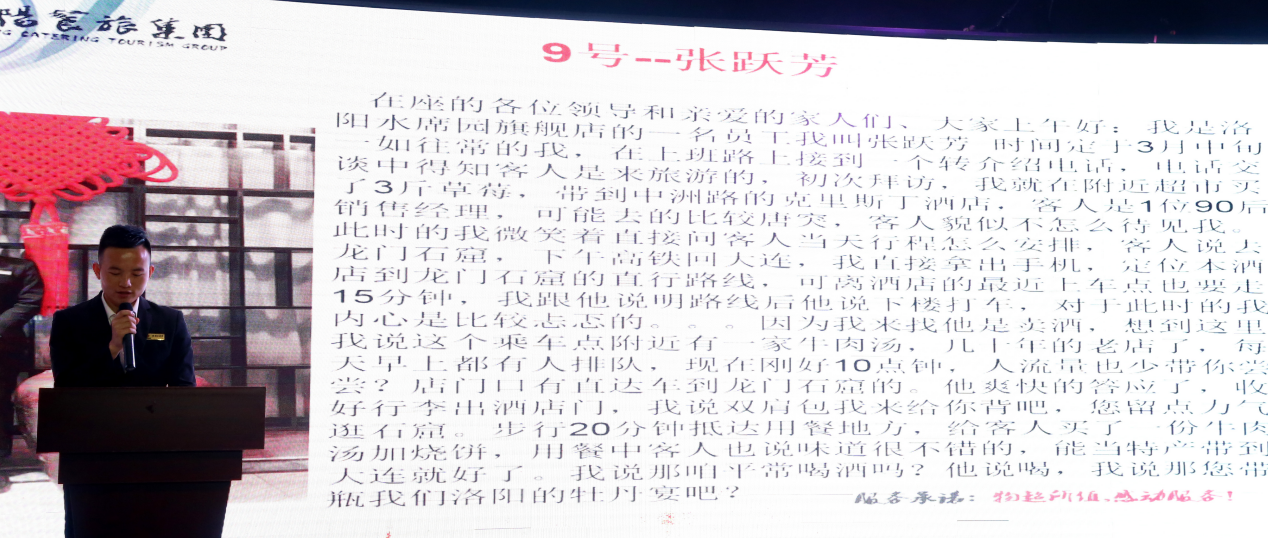 餐旅集团
NG CATERING TOURISM GROUP
9号--张跃芳
在座的各位领导和亲爱的家人们、大家上午好：我是洛
阳水席园旗舰店的一名员工我叫张跃芳 时间定于3月中旬
一如往常的我，在上班路上接到一个转介绍电话，电话交
谈中得知客人是来旅游的，初次拜访，我就在附近超市买
了3斤草莓，带到中洲路的克里斯丁酒店，客人是1位90后
销售经理，可能去的比较唐突，客人貌似不怎么待见我。
此时的我微笑着直接问客人当天行程怎么安排，客人说去
龙门石窟，下午高铁回大连，我直接拿出手机，定位本酒
店到龙门石窟的直行路线，可离酒店的最近上车点也要走
15分钟，我跟他说明路线后他说下楼打车，对于此时的我
内心是比较忐忑的。。。因为我来找他是卖酒，想到这里
我说这个乘车点附近有一家牛肉汤，几十年的老店了，每
天早上都有人排队，现在刚好10点钟，人流量也少带你尝
尝？店门口有直达车到龙门石窟的。他爽快的答应了，收
好行李出酒店门，我说双肩包我来给你背吧，您留点力气
逛石窟。步行20分钟抵达用餐地方，给客人买了一份牛肉
汤加烧饼，用餐中客人也说味道很不错的，能当特产带到
大连就好了。我说那咱平常喝酒吗？他说喝，我说那您带
瓶我们洛阳的牡丹宴吧？
服务承诺：物超所值、感动服务！